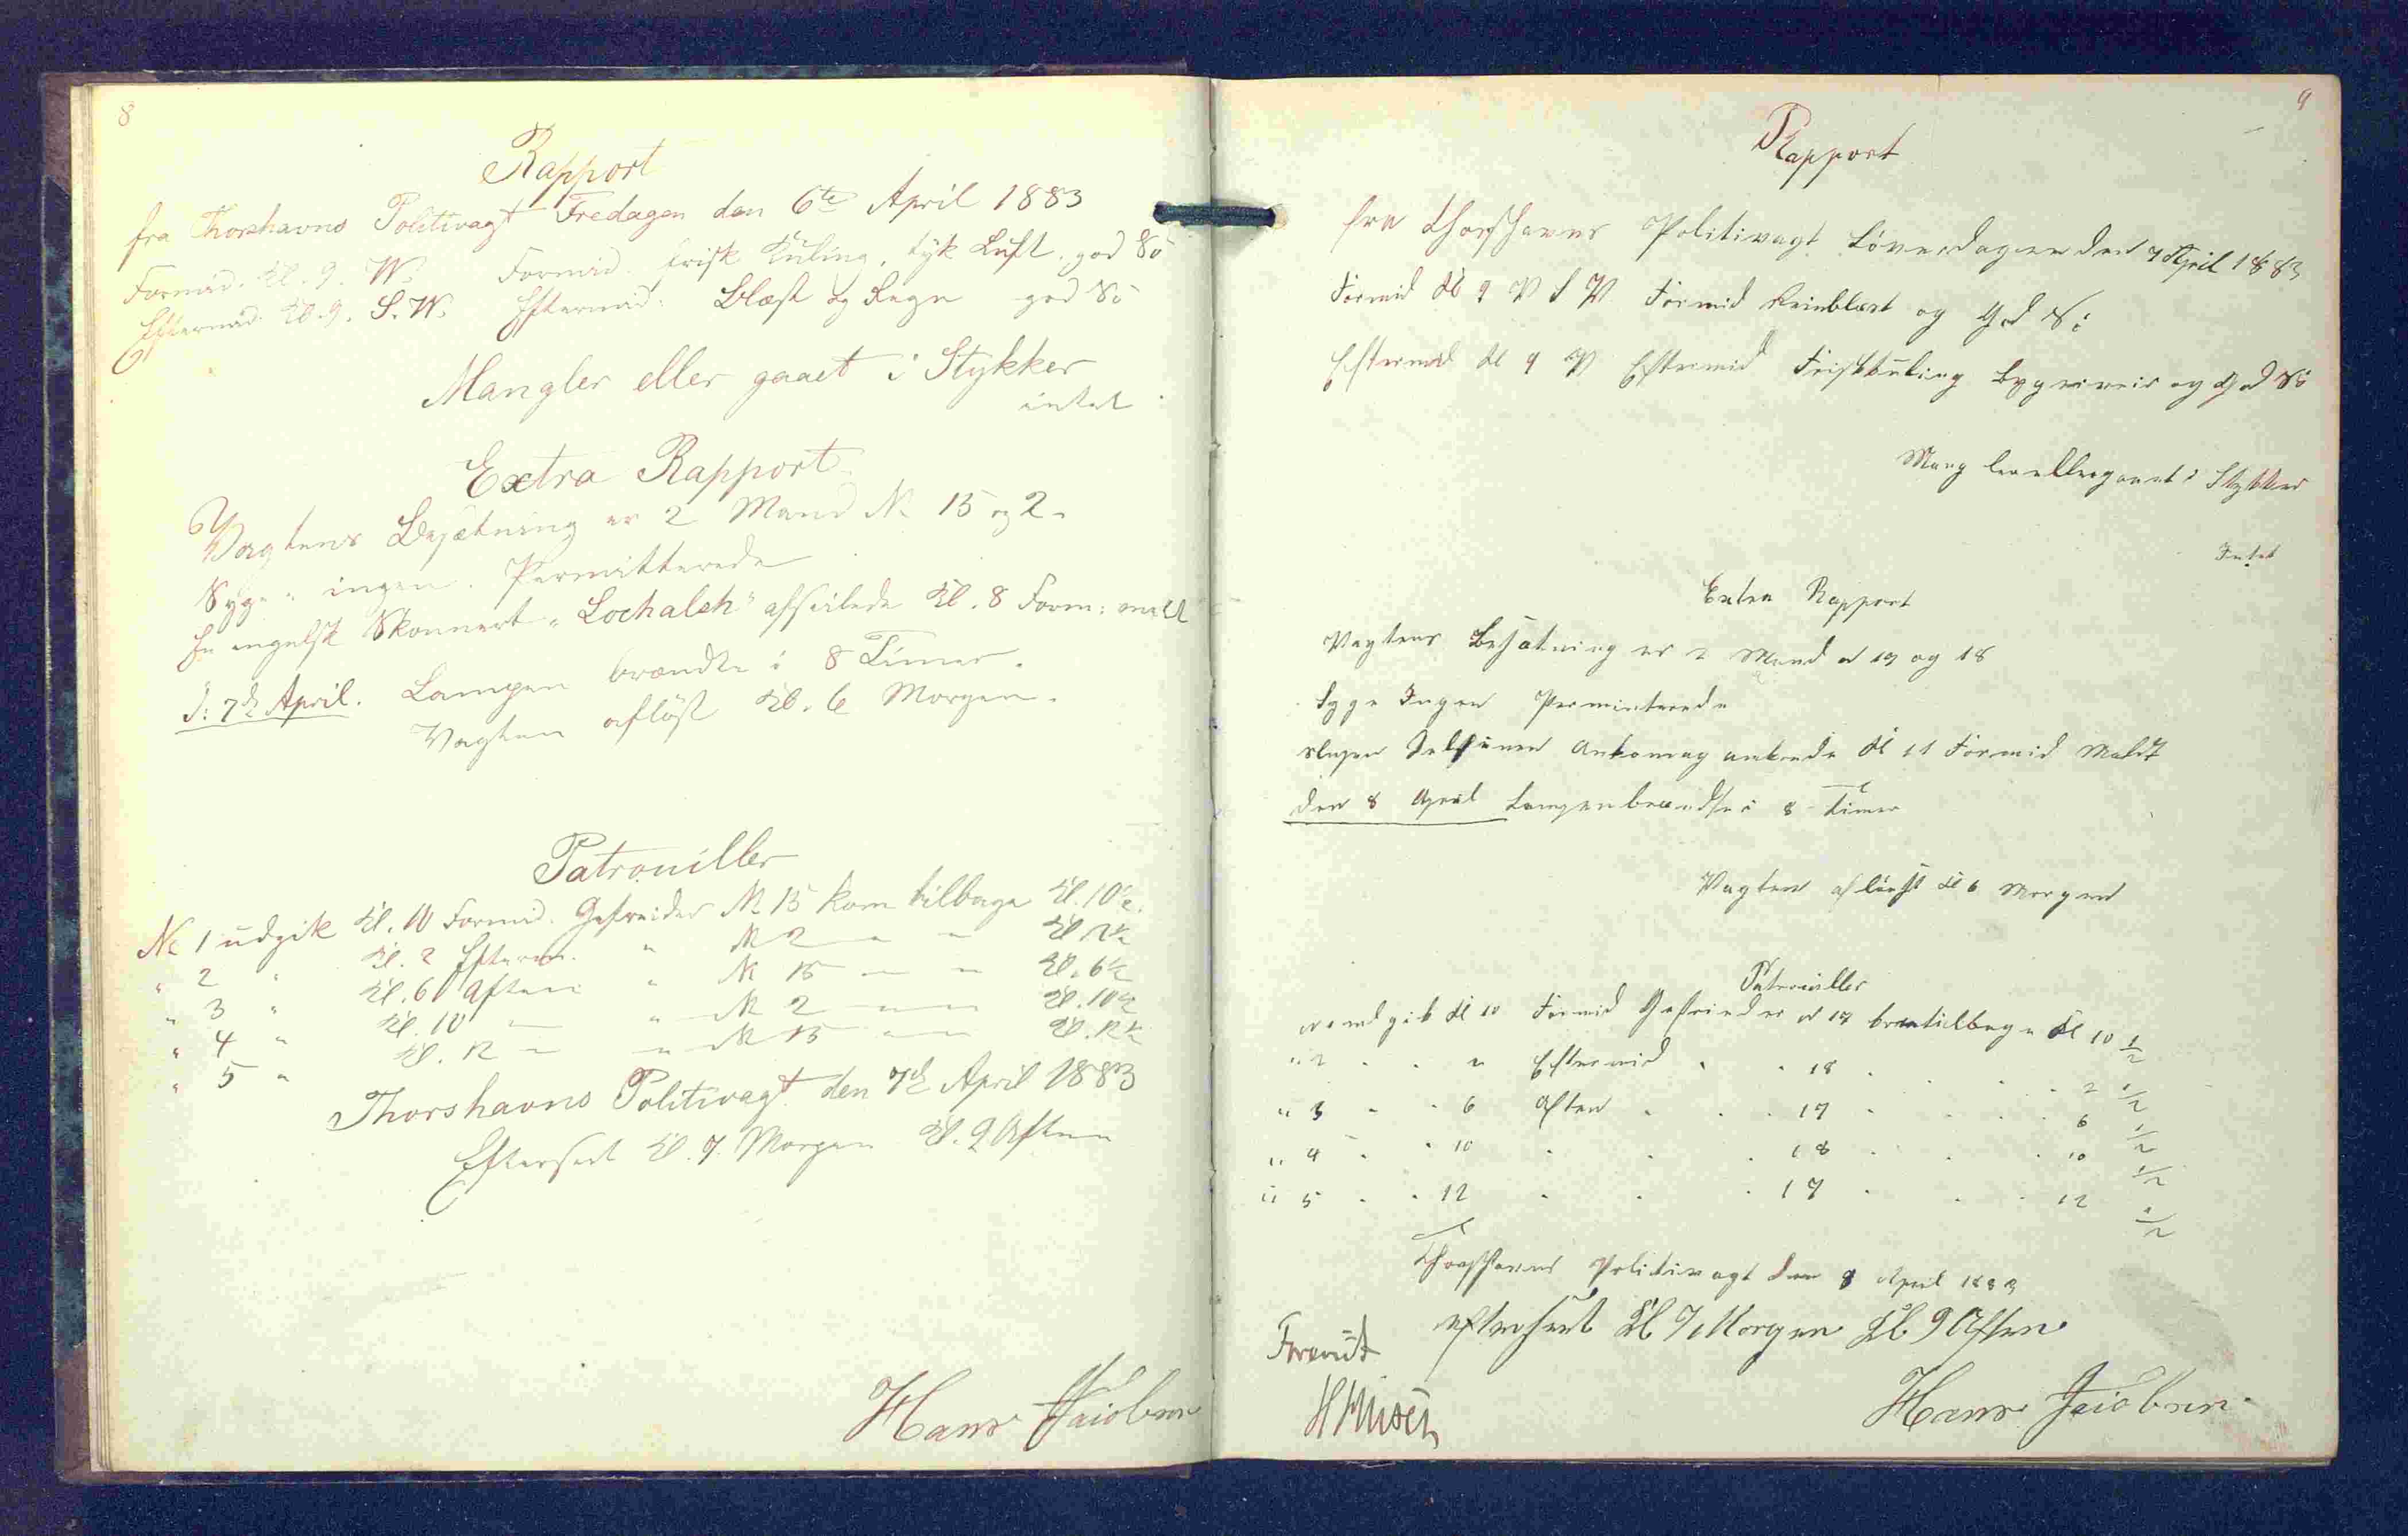 8
Rapport
fra Thorshavns Politivagt Fredagen den 6te April 1883
Formid. Kl. 9. W. Formid. frisk Kuling, tyk Luft, god Sö
Eftermid. Kl. 9. S.W. Eftermid. Blæst og Regn god Sö
Mangler eller gaaet i Stykker
intet
Extra Rapport
Vagtens Besætning er 2 Mand No 15 og 2.
Syge " ingen. Permitterede
En engelsk Skonnert "Lochalsh" afseilede Kl. 8 Form: meldt
d: 7de April. Lampen brændte i 8 Timer.
Vagten aflöst Kl. 6 Morgen.
Patrouiller
No 1 udgik Kl. 10 Formid. Gefreider No 15 kom tilbage Kl. 10½.
" 2 " Kl. 2 Efterm. " No 2 " " Kl. 2½
" 3 " Kl. 6 Aften " No 15 — " Kl. 6½
" 4 " Kl. 10 — " No 2 — — Kl. 10½
" 5 " Kl. 12 — " No 15 — — Kl. 12½
Thorshavns Politivagt den 7de April 1883
Efterseet Kl. 7. Morgen Kl. 9 Aften
Hans Jacobsen
9
Rapport
fra Thorshavns Politivagt Löverdagen den 7 April 1883
Formid Kl 9 V S V Formid Blæst og God Sö
Eftermid Kl 9 V Eftermid Friskkuling og God Sö
Mangler eller gaaet i Stykker
Intet
Extra Rapport
Vagtens Besætning er 2 Mand No 17 og 18
Syge Ingen Permiterede
Slupen Ankom og ankrede Kl 11 Formid Meldt
den 8 April Lampen brændte i 8 Timer
Vagten aflöst Kl 6 Morgen
Patrouiller
No 1 udgik Kl 10 Formid Gefreider No 17 kom tilbage Kl 10 ½
" 2 " " " Eftermid " " 18 " " " 2 ½
" 3 " " 6 Aften " " 17 " " " 6 ½
" 4 " " 10 " " " 18 " " " 10 ½
" 5 " " 12 " " " 17 " " " 12 ½
Thorshavns Politivagt den 8 April 1883
efterseet Kl 7 Morgen Kl 9 Aften
Hans Jacobsen